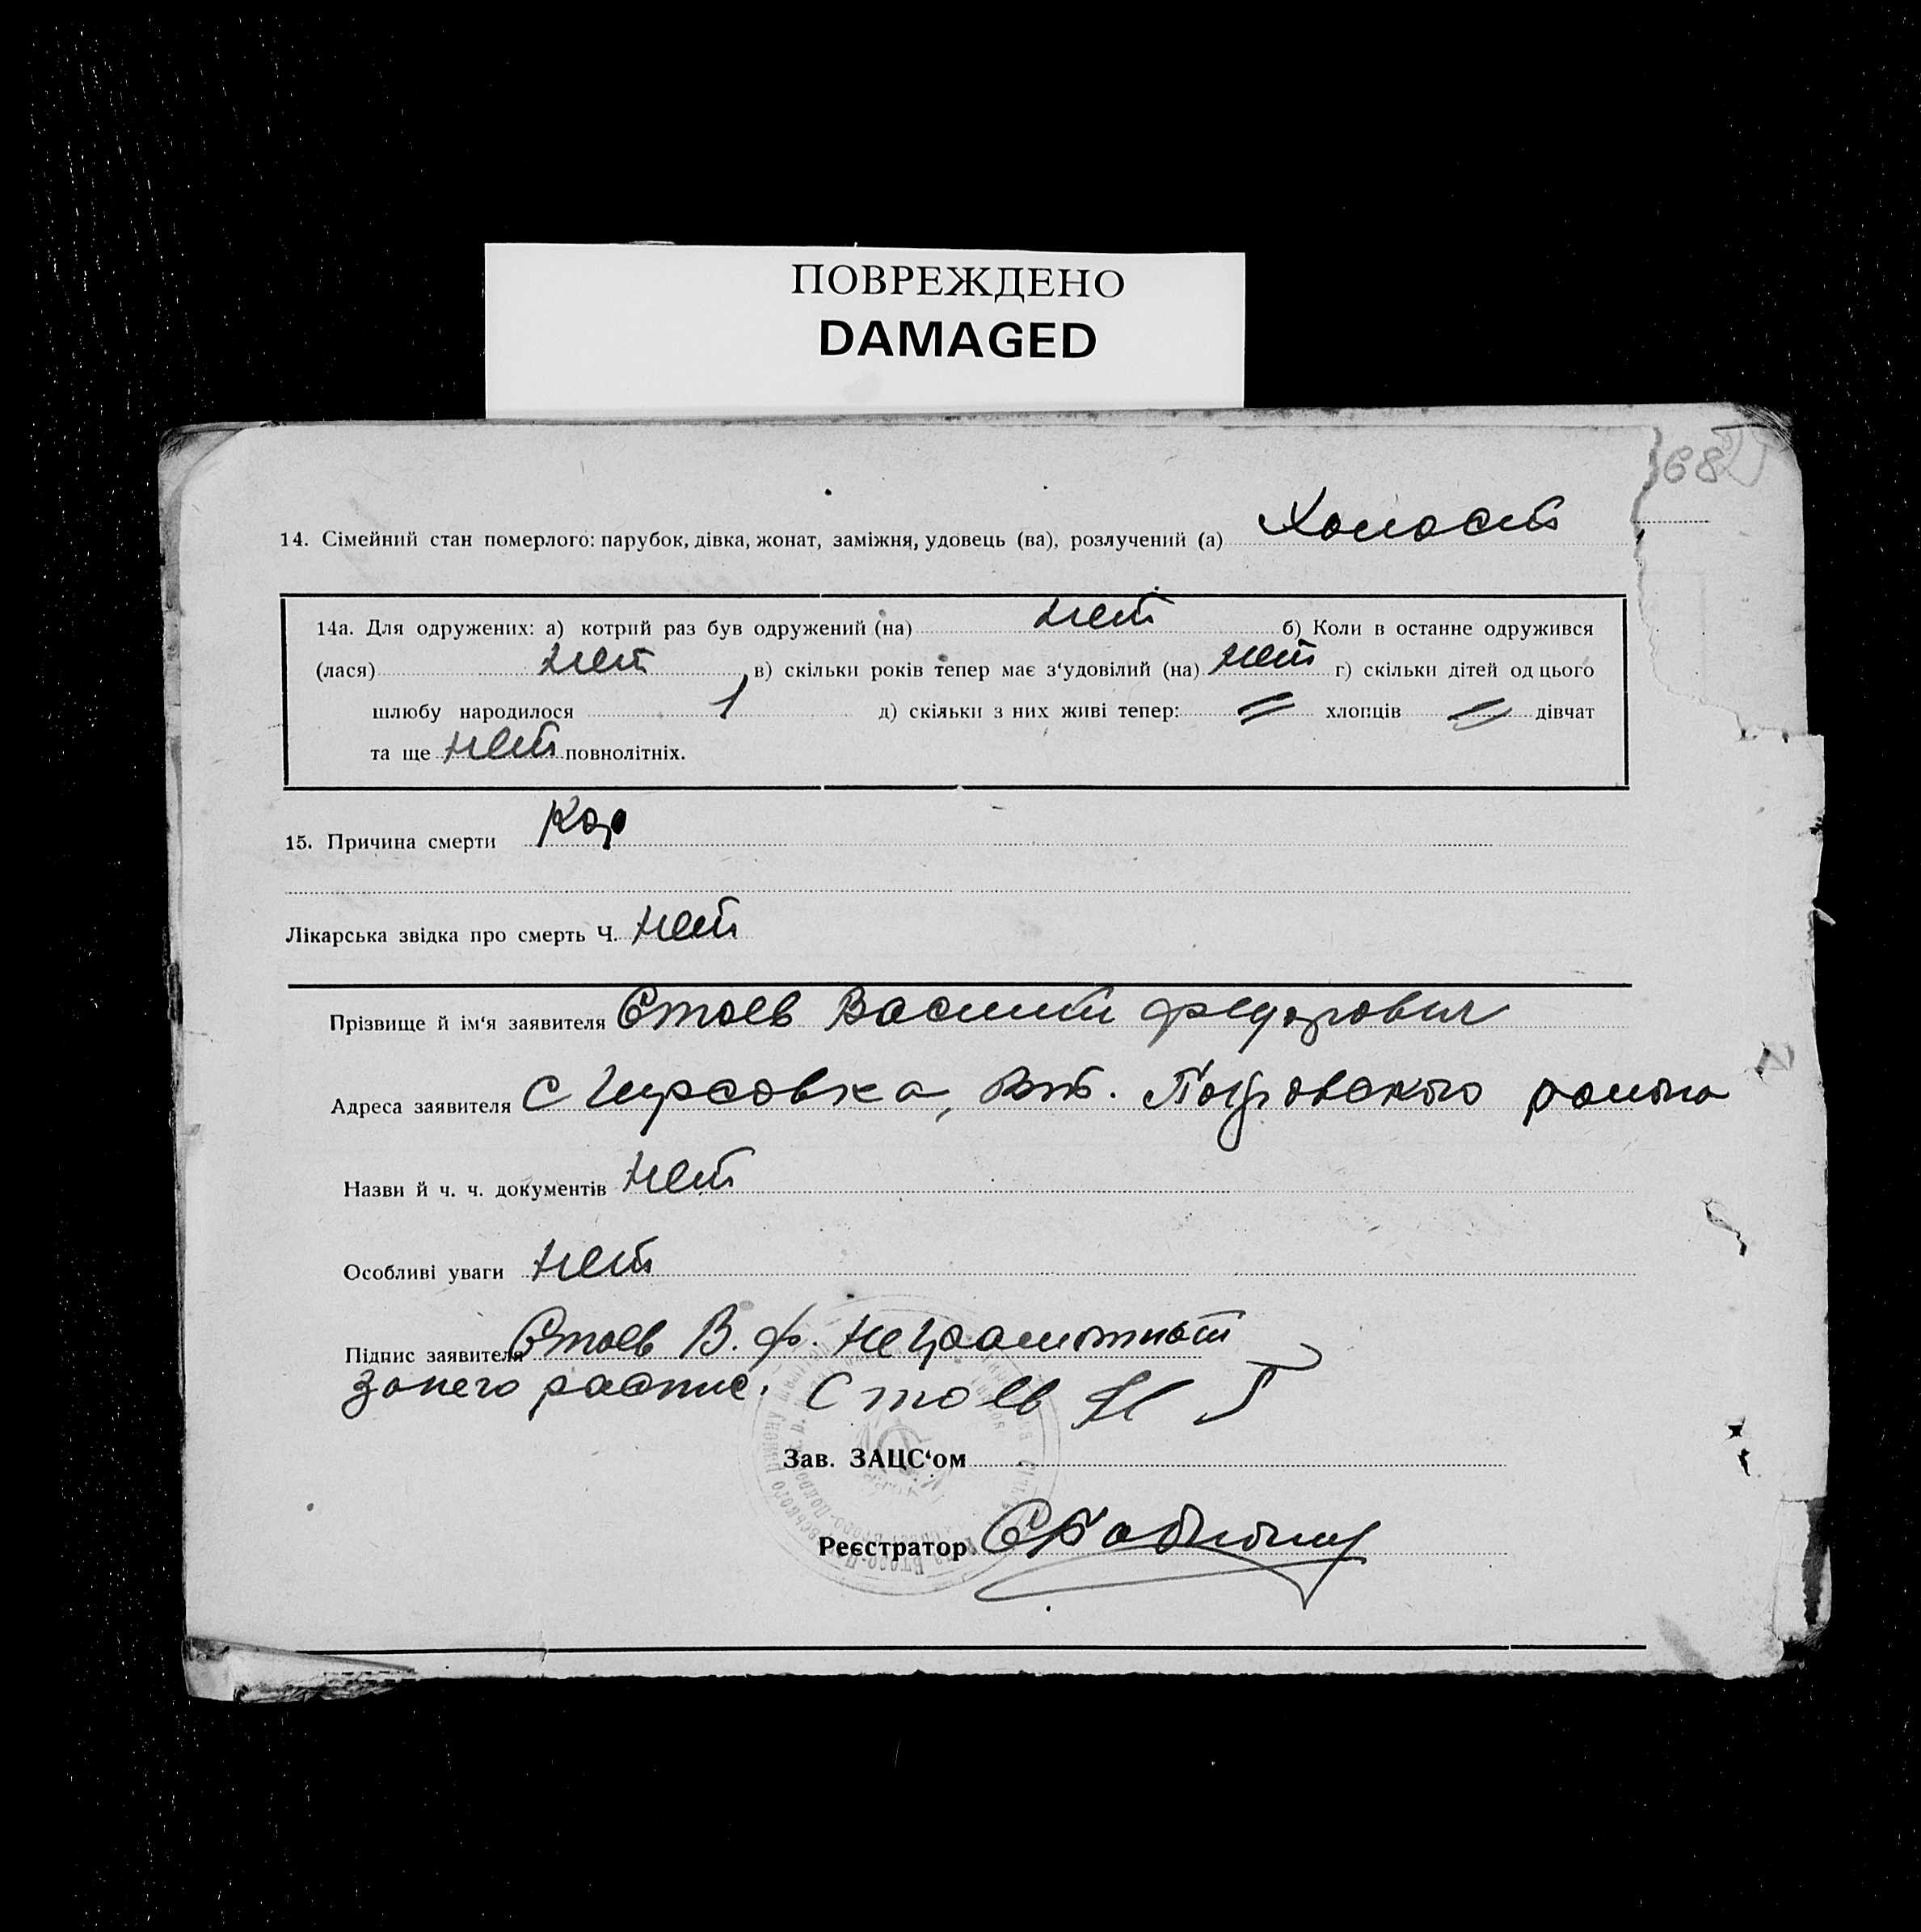 ПОВРЕЖДЕНО
DAMAGED
68
14. Сімейний стан померлого: парубок, дівка, жонат, заміжня, удовець (ва), розлучений (а) Холост
14а. Для одружених: а) котрий раз був одружений (на) нет б) Коли в останне одружився
(лася) нет в) скільки років тепер має з‘удовілий (на) нет г) скільки дітей од цього
шлюбу народилося д) скільки з них живі тепер: = хлопців = дівчат
та ще нет повнолітніх.
15. Причина смерти Кор
Лікарська звідка про смерть Ч. нет
Прізвище й ім‘я заявителя Стоев Василий Федорович
Адреса заявителя с Чирсовка, Вт. Покровского района
Назви й ч. ч. документів нет
Особливі уваги нет
Підпис заявителя Стоев В. Ф. неграмотный
за него распис. Стоев
Зав. ЗАЦС‘ом
Реєстратор